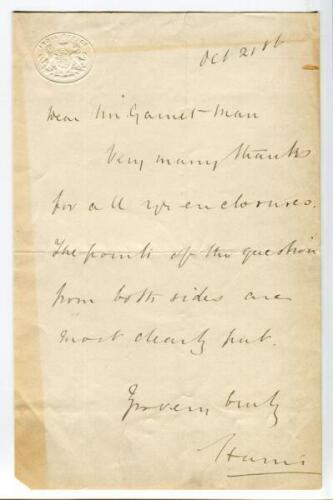 INDIA OFFICE
Oct 21 86
Dear Mr Garnet-Man
Very many thanks
for all yr enclosures.
The points of the question
from both sides are
most clearly put.
Yrs very truly
Harris